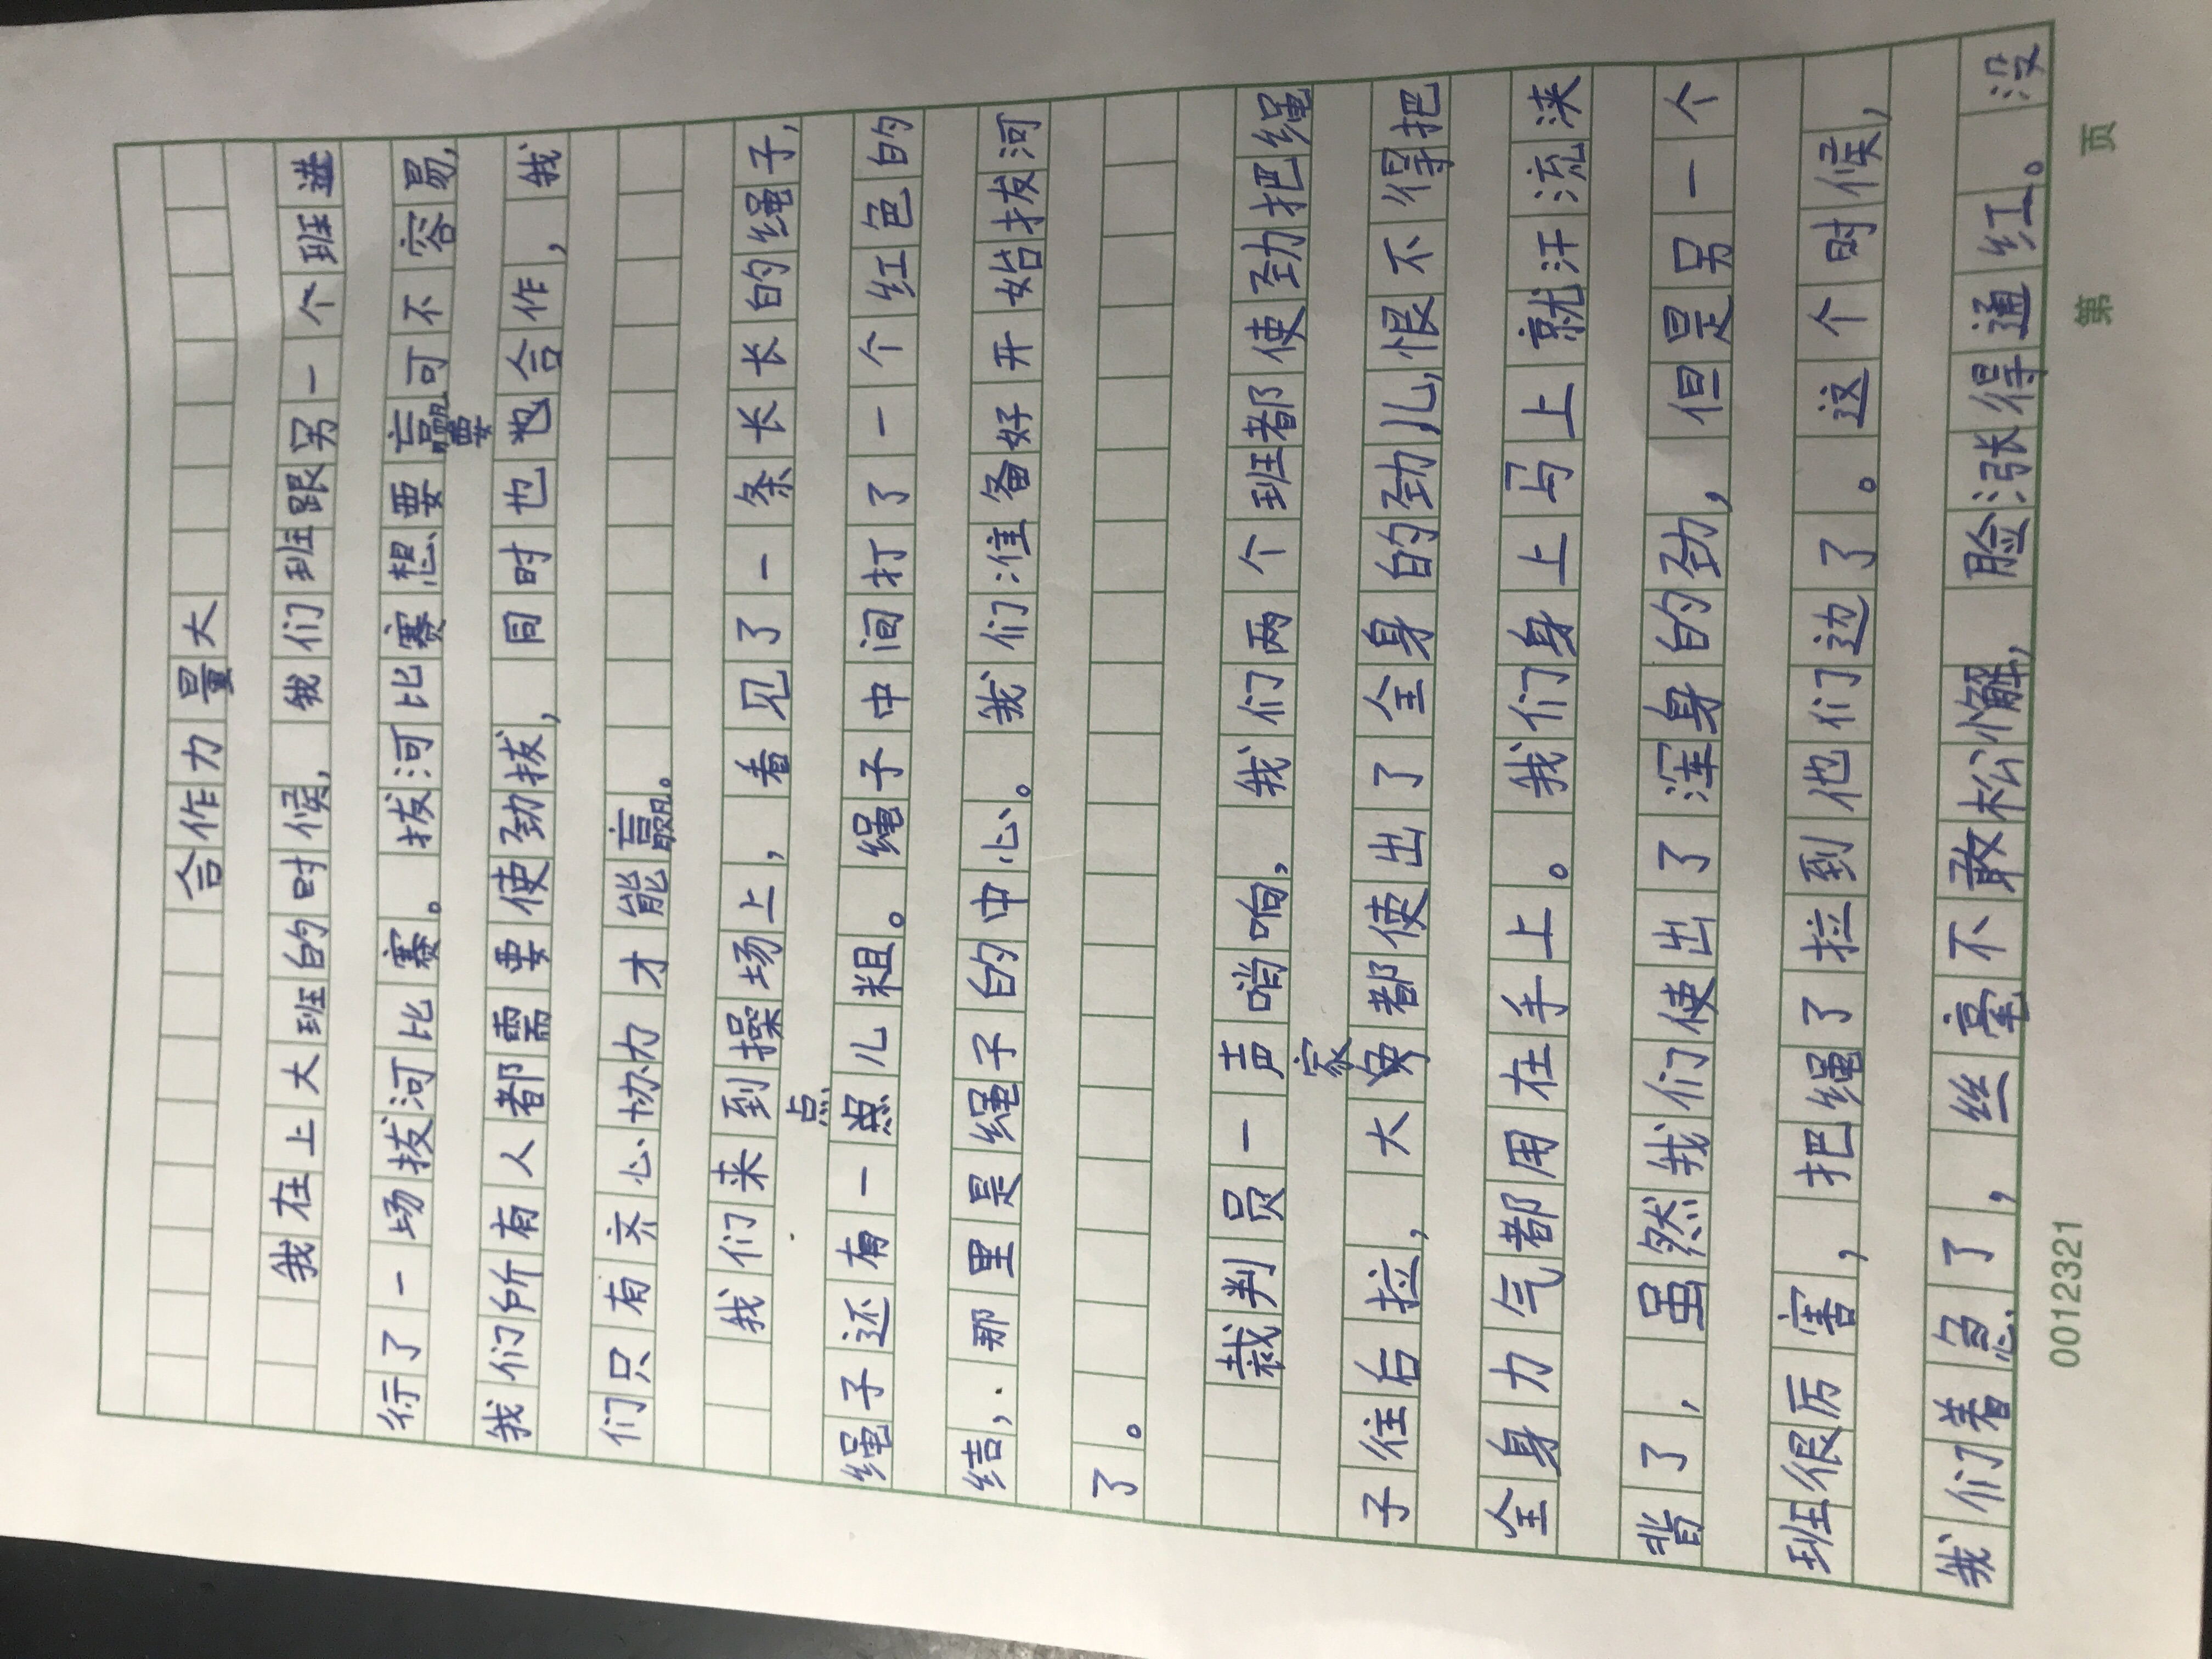 合作力量大
我在上大班的时候，我们班跟另一个班进
行了一场拔河比赛。拔河比赛想要赢可不容易，
要
我们所有人都需要使劲拔，同时也合作，我
们只有齐心协力才能赢。
我们来到操场上，看见了一条长长的绳子，
点
绳子还有一点儿粗。绳子中间打了一个红色的
结，那里是绳子的中心。我们准备好开始拔河
了。
裁判员一声哨响，我们两个班都使劲把绳
家
子往后拉，大都使出了全身的劲儿，恨不得把
全身力气都用在手上。我们身上马上就汗流浃
背了，虽然我们使出了浑身的劲，但是另一个
班很厉害，把绳了拉到他们边了。这个时候，
我们着急了，丝毫不敢松懈，脸涨得通红。没
0012321 第 页